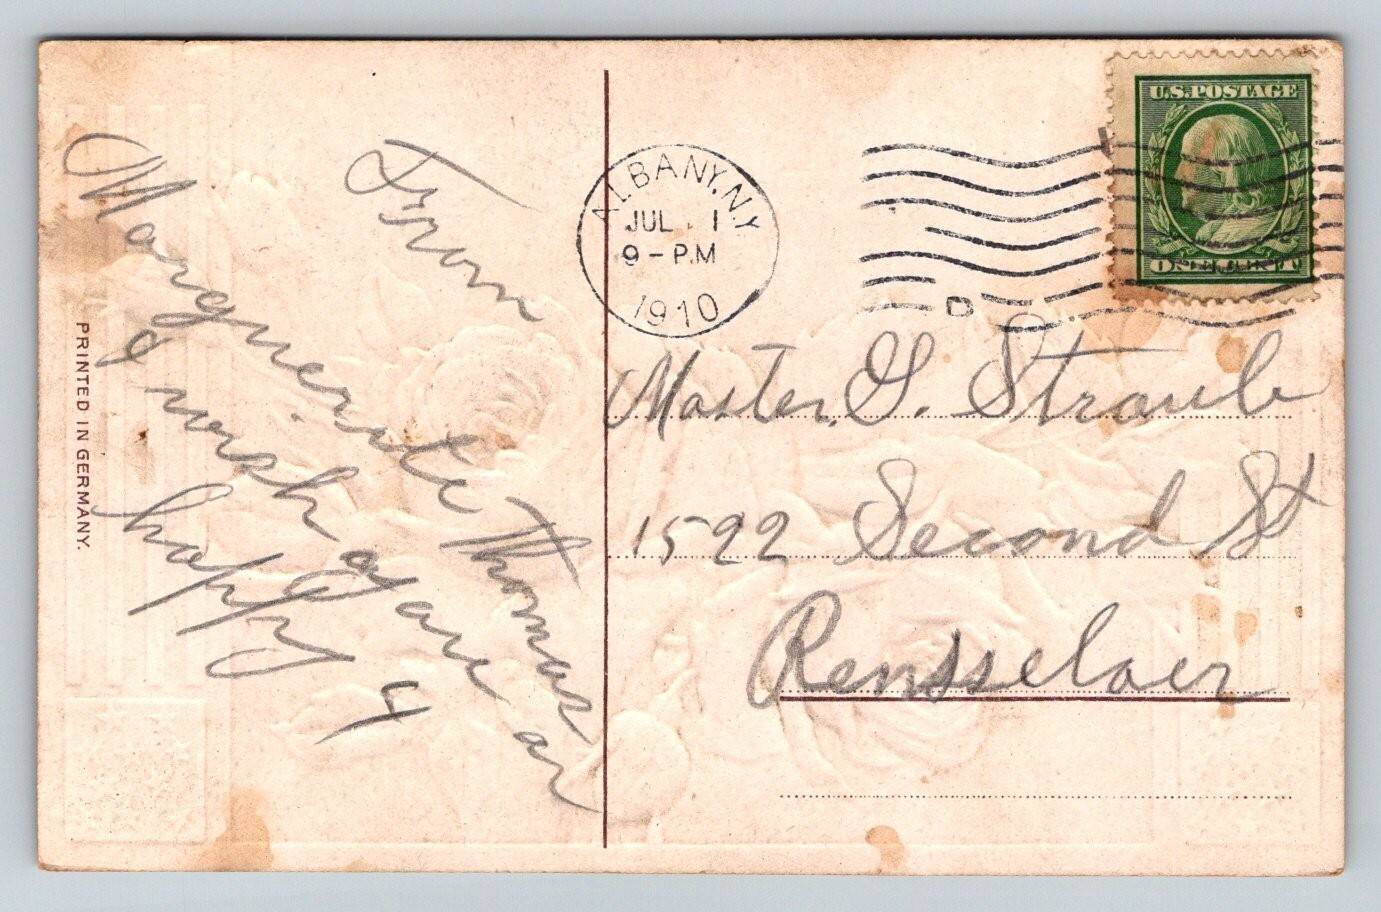 From
Marguerite Thomas
I wish you are an
happy 4
PRINTED IN GERMANY.
ALBANY, N.Y.
JUL 1
9 - P.M
1910
D
U.S. POSTAGE
ONE CENT
Master. G. Straub
1522 Second St
Rensselaer